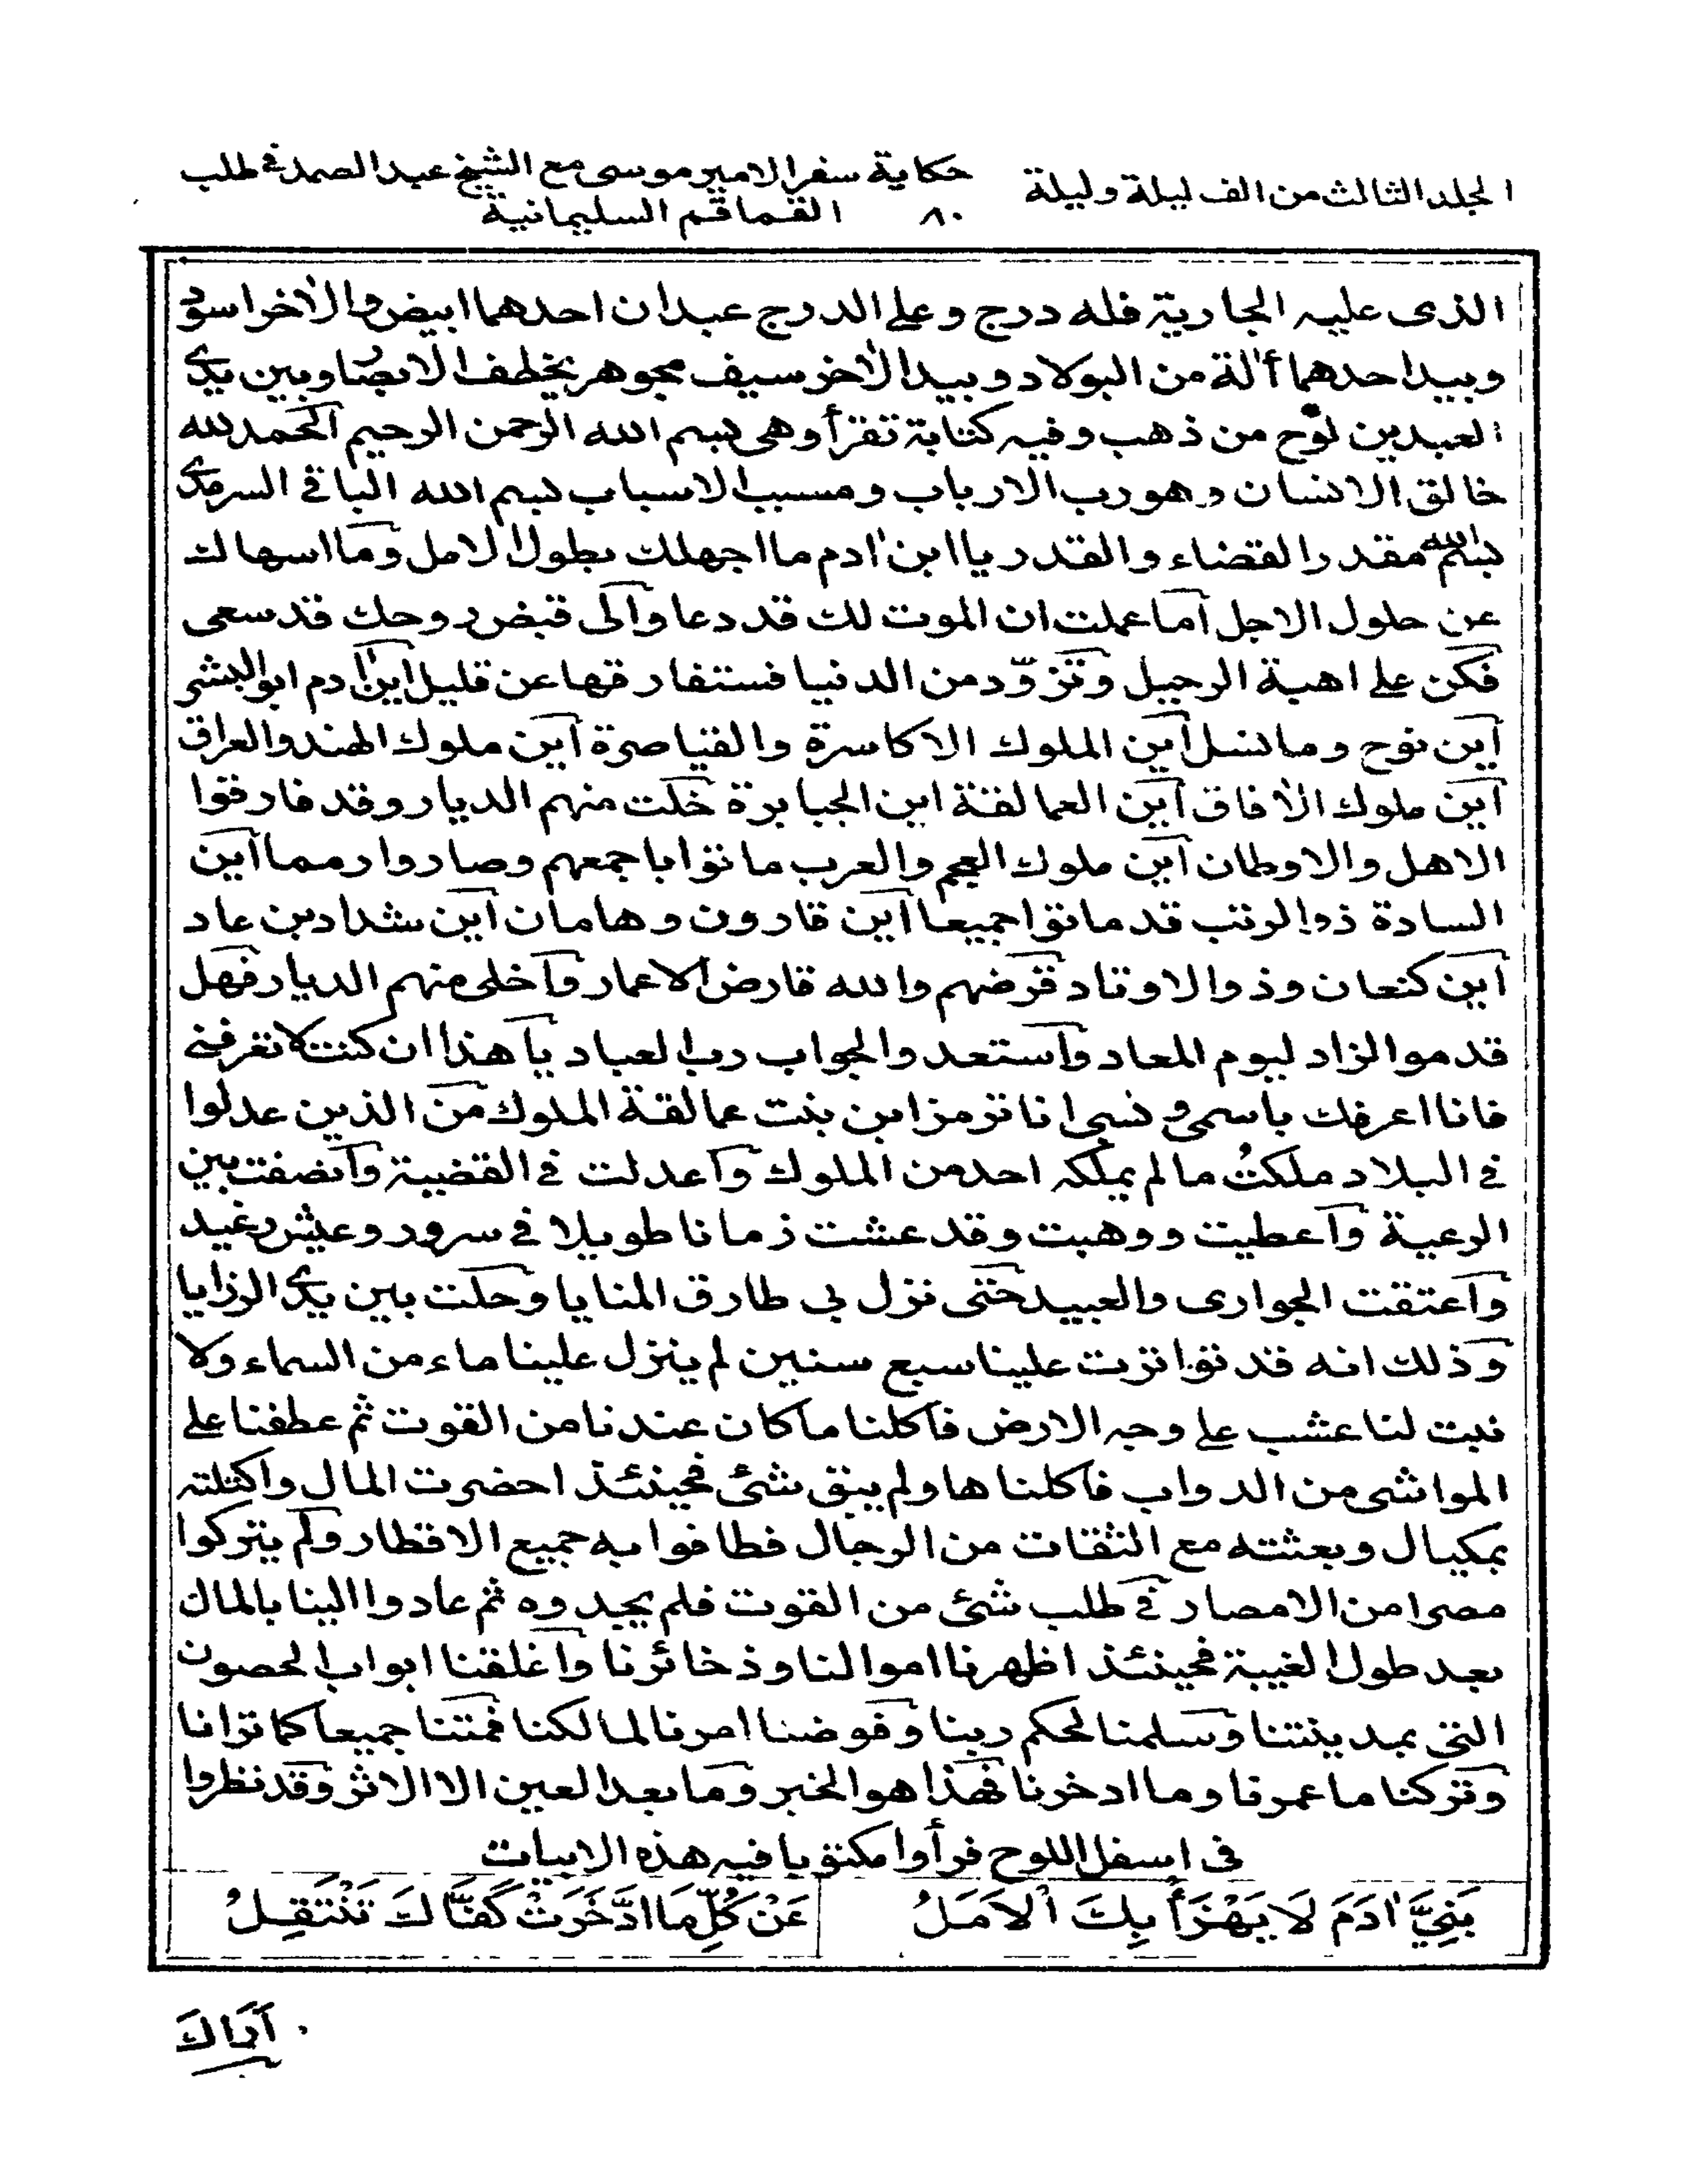 المجلد الثالث من الف ليلة وليلة
٨٠
حكاية سفر الامير موسى مع الشيخ عبد الصمد فى طلب
القماقم السليمانية
الذى عليه الجارية فله درج وعلى الدرج عبدان احدهما ابيض والاٰخر اسود
وبيد احدهما أٰلة من البولاد وبيد الاٰخر سيف مجوهر يخطف الابصار وبين يدى
العبدين لوح من ذهب وفيه كتابة تقرأ وهى بسم الله الرحمن الرحيم الحمد لله
خالق الانسان وهو رب الارباب ومسبب الاسباب بسم الله الباقى السرمدى
بسم الله مقدر القضاء والقدر يا ابن اٰدم ما اجهلك بطول الامل وما اسهاك
عن حلول الاجل اما علمت ان الموت لك قد دعا والى قبض روحك قد سعى
فكن على اهبة الرحيل وتزوّد من الدنيا فستفارقها عن قليل اين اٰدم ابو البشر
اين نوح وما نسل اين الملوك الاكاسرة والقياصرة اين ملوك الهند والعراق
اين ملوك الاٰفاق اين العمالقة اين الجبابرة خلت منهم الديار وقد فارقوا
الاهل والاوطان اين ملوك العجم والعرب ماتوا باجمعهم وصاروا رمما اين
السادة ذو الرتب قد ماتوا جميعا اين قارون وهامان اين شداد بن عاد
اين كنعان وذو الاوتاد قرضهم والله قارض الاعمار واخلى منهم الديار فهل
قدموا الزاد ليوم المعاد واستعدوا لجواب رب العباد يا هذا ان كنت لا تعرفنى
فانا اعرفك باسمى ونسبى انا ترمز ابن بنت عمالقة الملوك من الذين عدلوا
فى البلاد ملكتُ ما لم يملكه احد من الملوك واعدلت فى القضية وانصفت بين
الرعية واعطيت ووهبت وقد عشت زمانا طويلا فى سرور وعيش رغيد
واعتقت الجوارى والعبيد حتى نزل بى طارق المنايا وحلت بين يدى الرزايا
وذلك انه قد تواترت علينا سبع سنين لم ينزل علينا ماء من السماء ولا
نبت لنا عشب على وجه الارض فاكلنا ما كان عندنا من القوت ثم عطفنا على
المواشى من الدواب فاكلناها ولم يبق شئ فحينئذ احضرت المال واكتلته
بمكيال وبعثته مع الثقات من الرجال فطافوا به جميع الاقطار ولم يتركوا
مصرا من الامصار فى طلب شئ من القوت فلم يجدوه ثم عادوا الينا بالمال
بعد طول الغيبة فحينئذ اظهرنا اموالنا وذخائرنا واغلقنا ابواب الحصون
التى بمدينتنا وسلمنا لحكم ربنا وفوضنا امرنا لمالكنا فمتنا جميعا كما ترانا
وتركنا ما عمرنا وما ادخرنا فهذا هو الخبر وما بعد العين الا الاثر وقد نظروا
فى اسفل اللوح فرأوا مكتوبا فيه هذه الابيات
بَنِيَّ اٰدَمَ لَا يَهْزَأْ بِكَ الْاَمَلُ عَنْ كُلِّ مَا ادَّخَرَتْ كَفَّاكَ تَنْتَقِلُ
اَرَاكَ